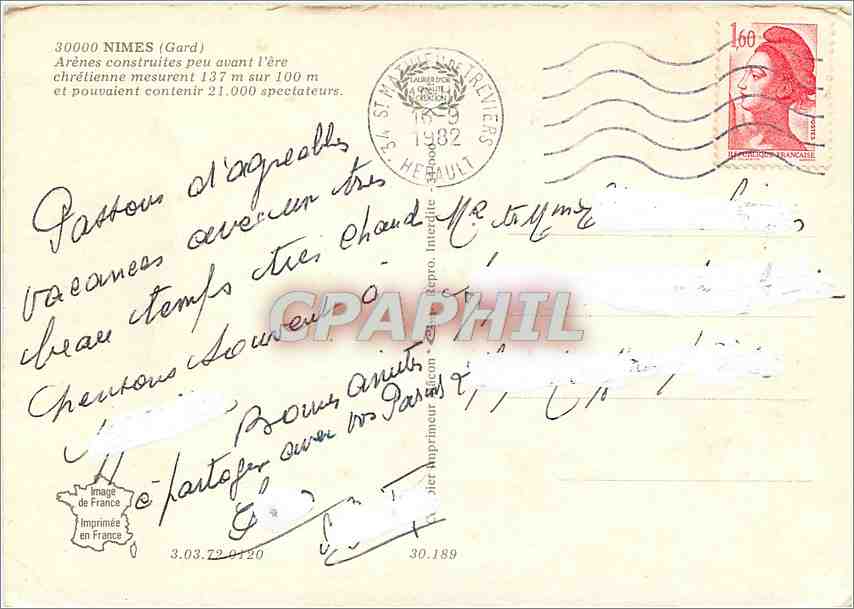 30000 NIMES (Gard)
Arènes construites peu avant l'ère
chrétienne mesurent 137 m sur 100 m
et pouvaient contenir 21.000 spectateurs.
1,60
POSTES
REPUBLIQUE FRANÇAISE
34 ST MATHIEU DE TREVIERS
HERAULT
LAURIER D'OR
QUALITE
CREATION
9
1982
Passons d'agreables
vacances avec un tres
beau temps tres chaud
pensons souvent à
Bonnes amities
à partager avec vos
Mr et Mme
CPAPHIL
Imprimeur Mâcon
Repro. Interdite
Image
de France
Imprimée
en France
3.03.72.0120
30.189